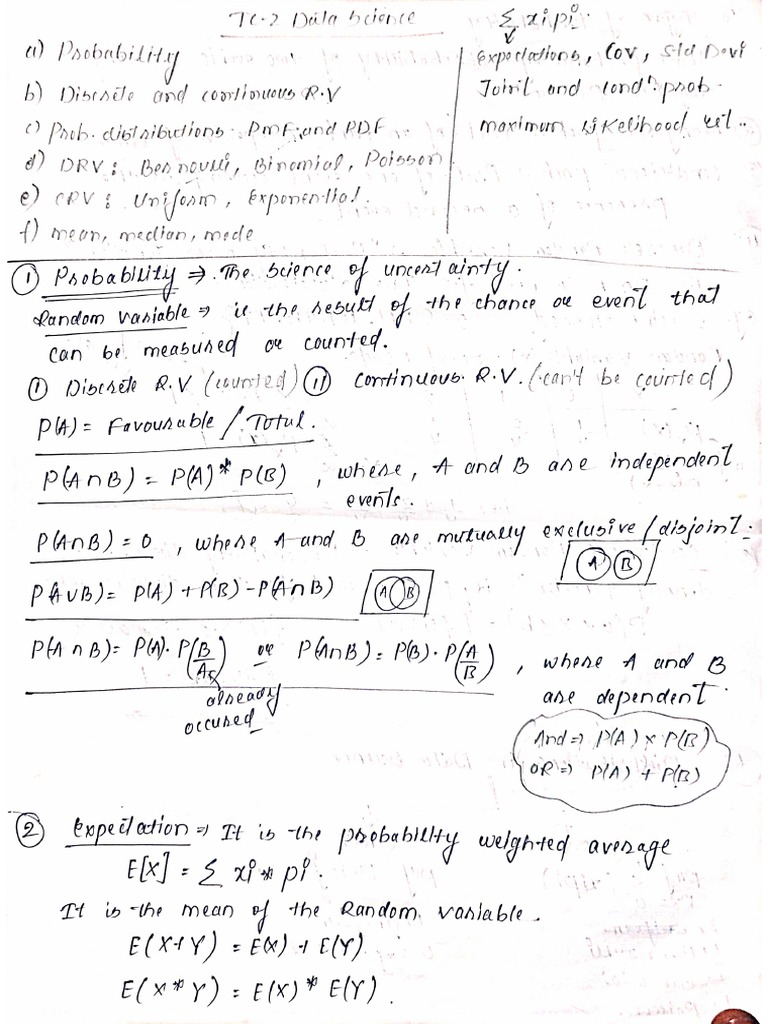 TC-2 Data Science
a) Probability
b) Discrete and continuous R.V
c) Prob. distributions. PMF and PDF
d) DRV: Bernoulli, Binomial, Poisson
e) CRV: Uniform, Exponential.
f) mean, median, mode
Σ xipi.
Expectations, Cov, Std Devi
Joint and condn. prob.
maximum likelihood est..
① Probability ⇒ The science of uncertainty.
Random variable ⇒ is the result of the chance or event that
can be measured or counted.
① Discrete R.V (counted) ⑪ Continuous R.V. (can't be counted)
P(A) = Favourable / Total.
P(A∩B) = P(A) * P(B) , where, A and B are independent
events.
P(A∩B) = 0 , where A and B are mutually exclusive/disjoint.
A B
P(A∪B) = P(A) + P(B) - P(A∩B) A B
P(A∩B) = P(A). P(B/A) or P(A∩B) = P(B). P(A/B) , where A and B
are dependent.
already
occured
And ⇒ P(A) x P(B)
OR ⇒ P(A) + P(B)
② Expectation ⇒ It is the probability weighted average
E[X] = Σ xi * pi.
It is the mean of the Random variable.
E(X+Y) = E(X) + E(Y)
E(X * Y) = E(X) * E(Y).